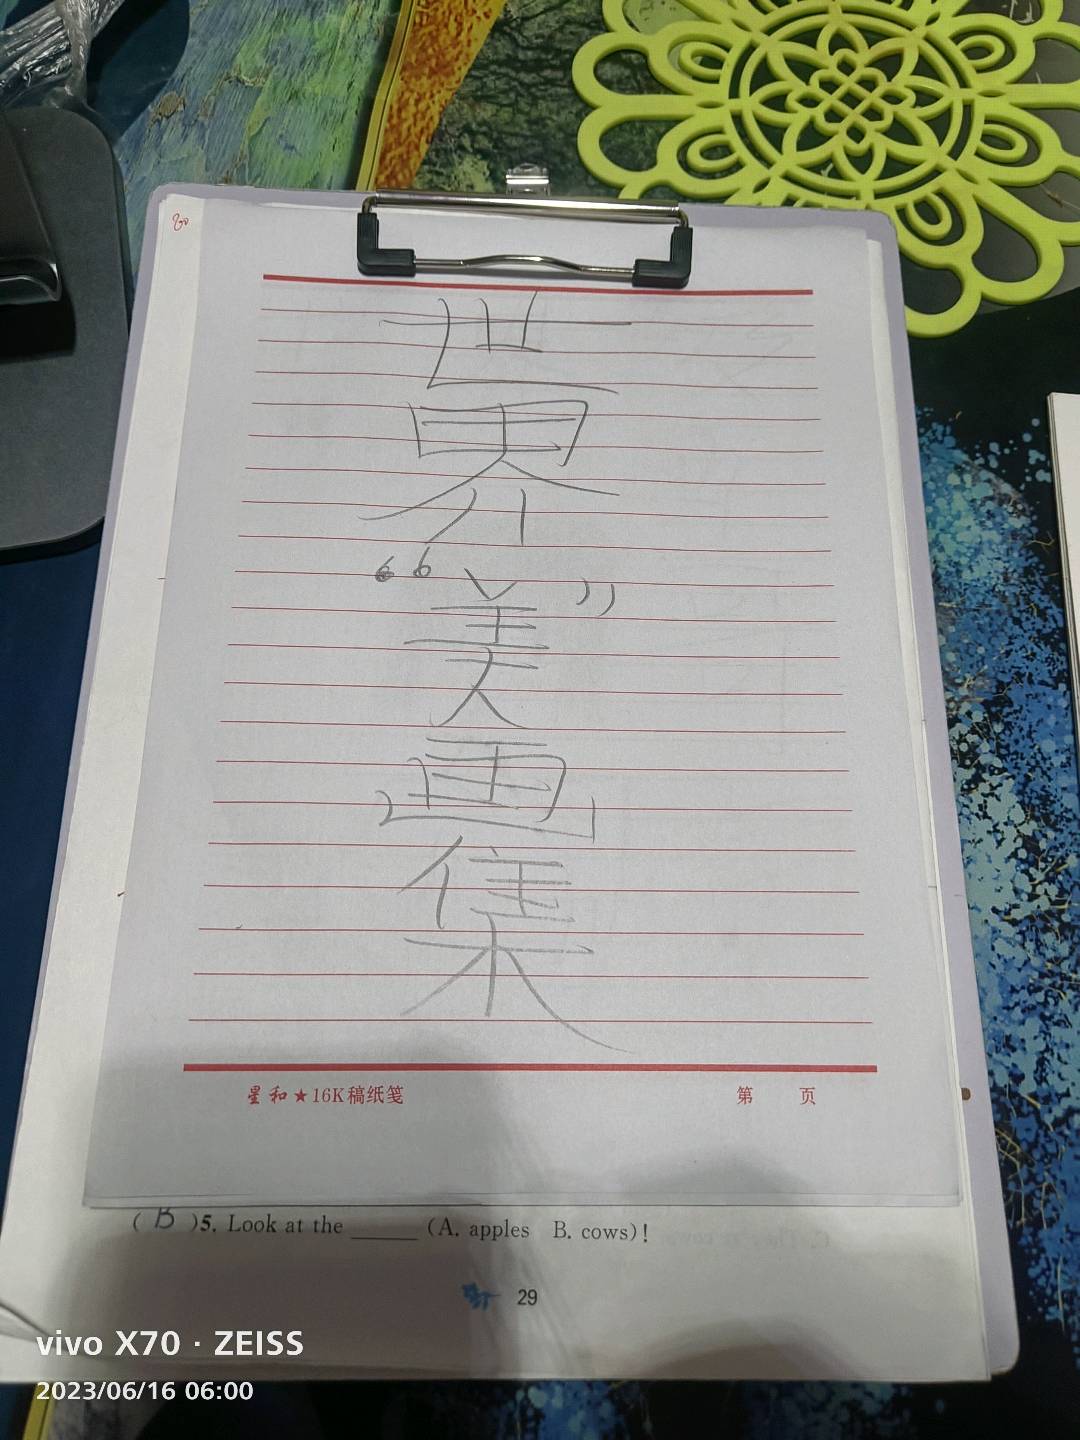 世
界
“美”
画
集
星和★16K稿纸笺 第 页
( B )5. Look at the ______ (A. apples B. cows)!
29
vivo X70 · ZEISS
2023/06/16 06:00